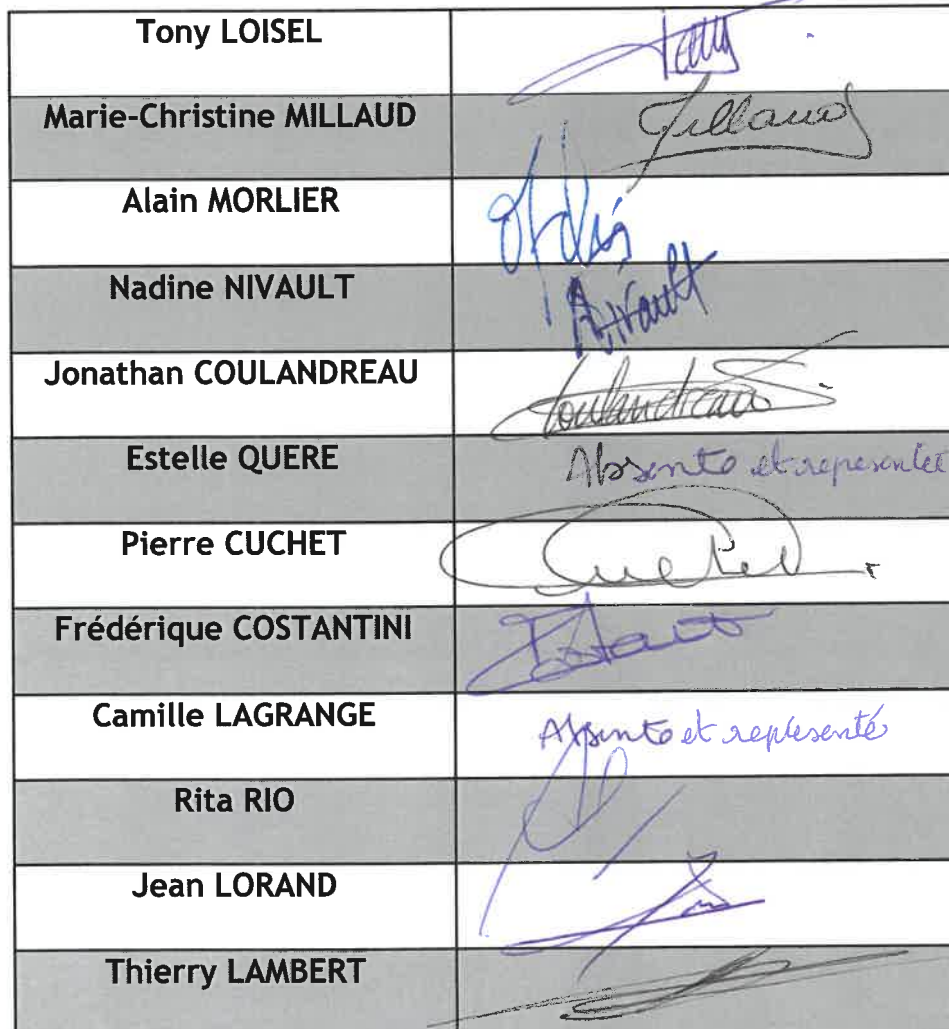 Tony LOISEL
Tony
Marie-Christine MILLAUD
Millaud
Alain MORLIER
Nadine NIVAULT
Nivault
Jonathan COULANDREAU
Coulandreau
Estelle QUERE
Absente et representée
Pierre CUCHET
Cuchet
Frédérique COSTANTINI
Camille LAGRANGE
Absente et représenté
Rita RIO
Jean LORAND
Thierry LAMBERT